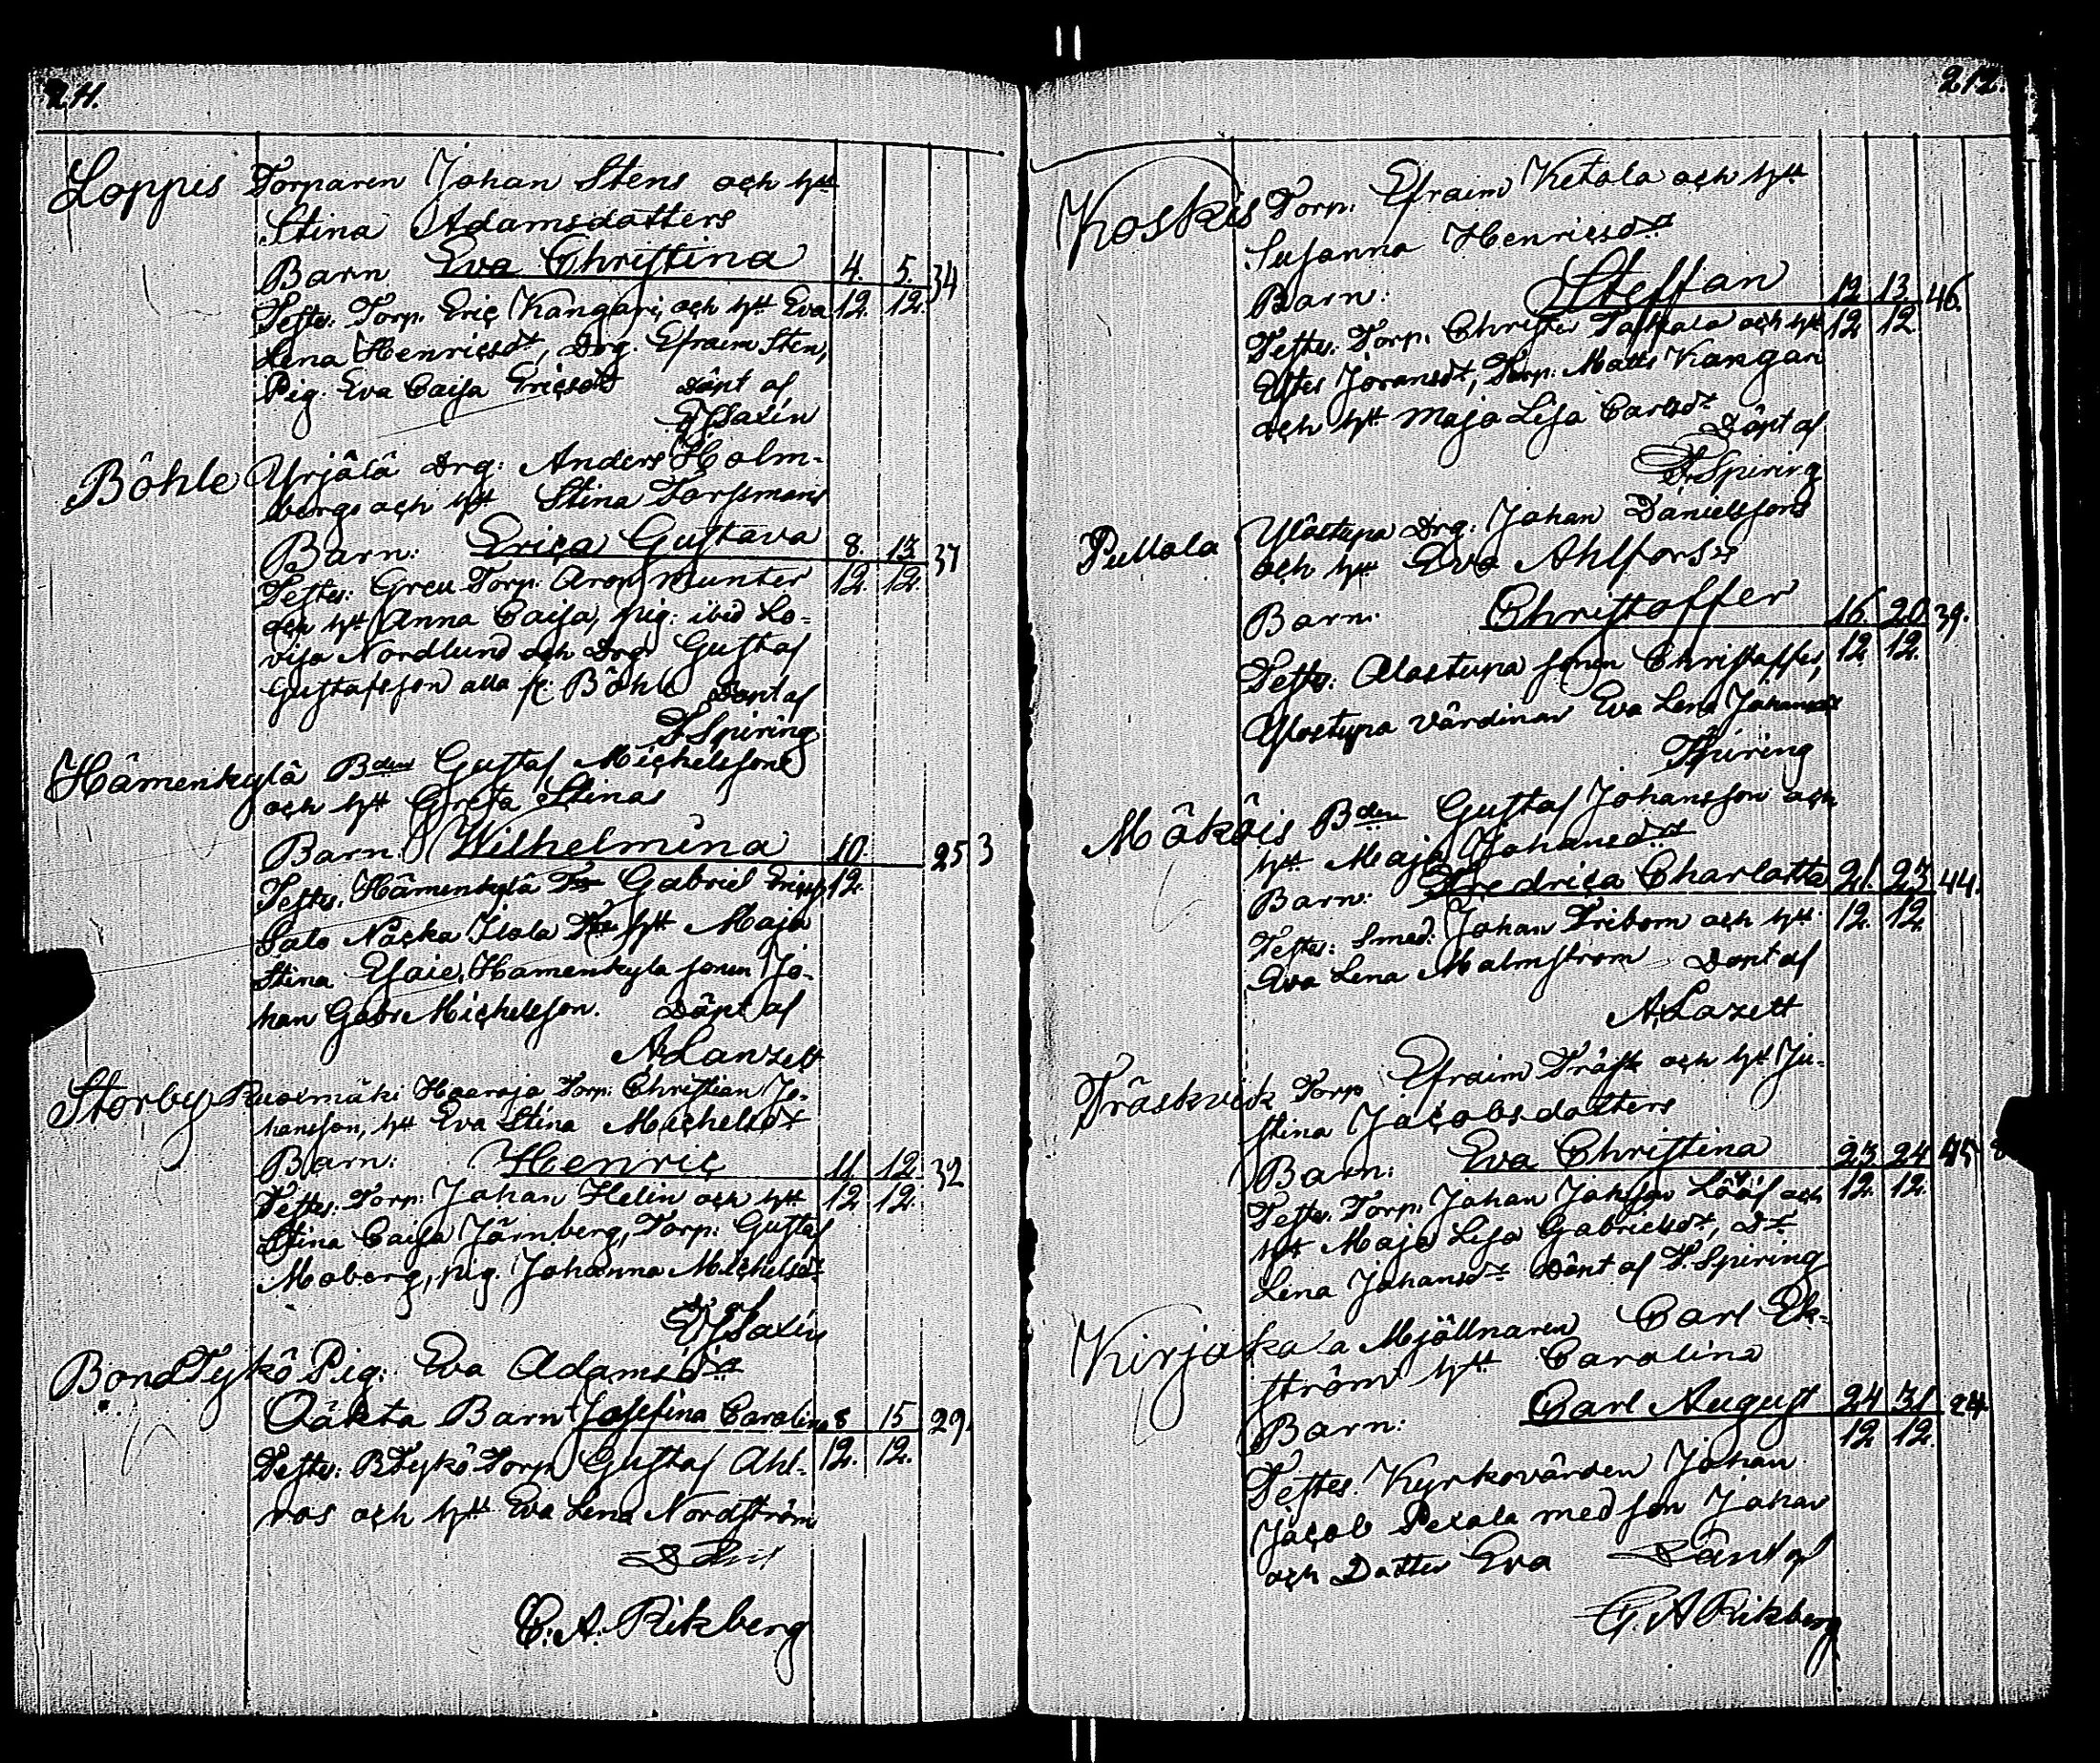 211.
Loppis Torparen Johan Stens och hu
Stina Adamsdotters
Barn Eva Christina 4. 5. 34
Testes: Torp. Eric Kangari, och hu Eva 12. 12.
Lena Henricsdr, Drg. Efraim Sten,
Pig. Eva Caisa Ericsdr Döpt af
Saxén
Böhle Yrjälä Drg: Anders Holm-
bergs och hu Stina Forssmans
Barn: Erica Gustava 8. 13 37
Testes: Torp: Aron Munter 12. 12.
och hu Anna Caisa, pig: ibid Lo-
visa Nordlund och Drg Gustaf
Gustafsson alla fr: Böhle Döpt af
F. Spiring
Hämenkylä Bden Gustaf Michelssons
och hu Greta Stinas
Barn: Wilhelmina 10. 25 3
Testes. Hämenkylä Gabriel 12.
Salo Näcka Isola hu Maja
Stina Esaie, Hämenkyla sonen Jo-
han Gabr Michelsson. Döpt af
A. Lanzett
Storby Ruosmäki Haaroja Torp: Christian Jo-
hansson, hu Eva Stina Michelsdr
Barn: Henric 11. 12. 32
Testes: Torp: Johan Helin och hu 12 12.
Stina Caisa Järnberg, Torp: Gustaf
Moberg, pig. Johanna Michelsdr
D. af
Saxén
BondTykö Pig: Eva Adamsdr
Oäkta Barn Josefina Carolina 8 15 29.
Testes: BTykö Torp Gustaf Ahl- 12. 12.
ros och hu Eva Lena Nordström
C. A. Rikberg
212.
Koskis Torp: Efraim Ketola och hu
Susanna Henricsdr
Barn: Steffan 12 13 46.
Testes: Torp: Christer och hu 12 12
Ester Jöransdr, Torp: Matts Kangari
och hu Maja Lisa Carlsdr Döpt af
F. Spiring
Pullola Ylöstupa Drg: Johan Danielssons
och hu Eva Ahlfors
Barn: Christoffer 16. 20 39.
Testes: Alastupa sonen Christoffer, 12 12.
Ylöstupa värdinan Eva Lena Johansdr
F Spiring
Mököis Bden Gustaf Johansson och
hu Maja Johansdr
Barn: Fredrica Charlotta 21. 23 44.
Testes: Smed. Johan Fribom och hu 12. 12.
Eva Lena Malmström Döpt af
A. Lazett
Träskvik Torp Efraim Träsk och hu Ju-
stina Jacobsdotters
Barn: Eva Christina 23 24 45
Testes: Torp: Johan Lööf och 12. 12.
hu Maja Lisa Gabrielsdr, Dr
Lena Johansdr Döpt af F. Spiring
Kirjakala Mjöllnaren Carl Ek-
ström hu Carolina
Barn: Carl August 24 31 24
12 12.
Testes. Kyrkovärden Johan
Jacob Pexala med son Johan
och Dotter Eva Döpt af
C. A Rikberg